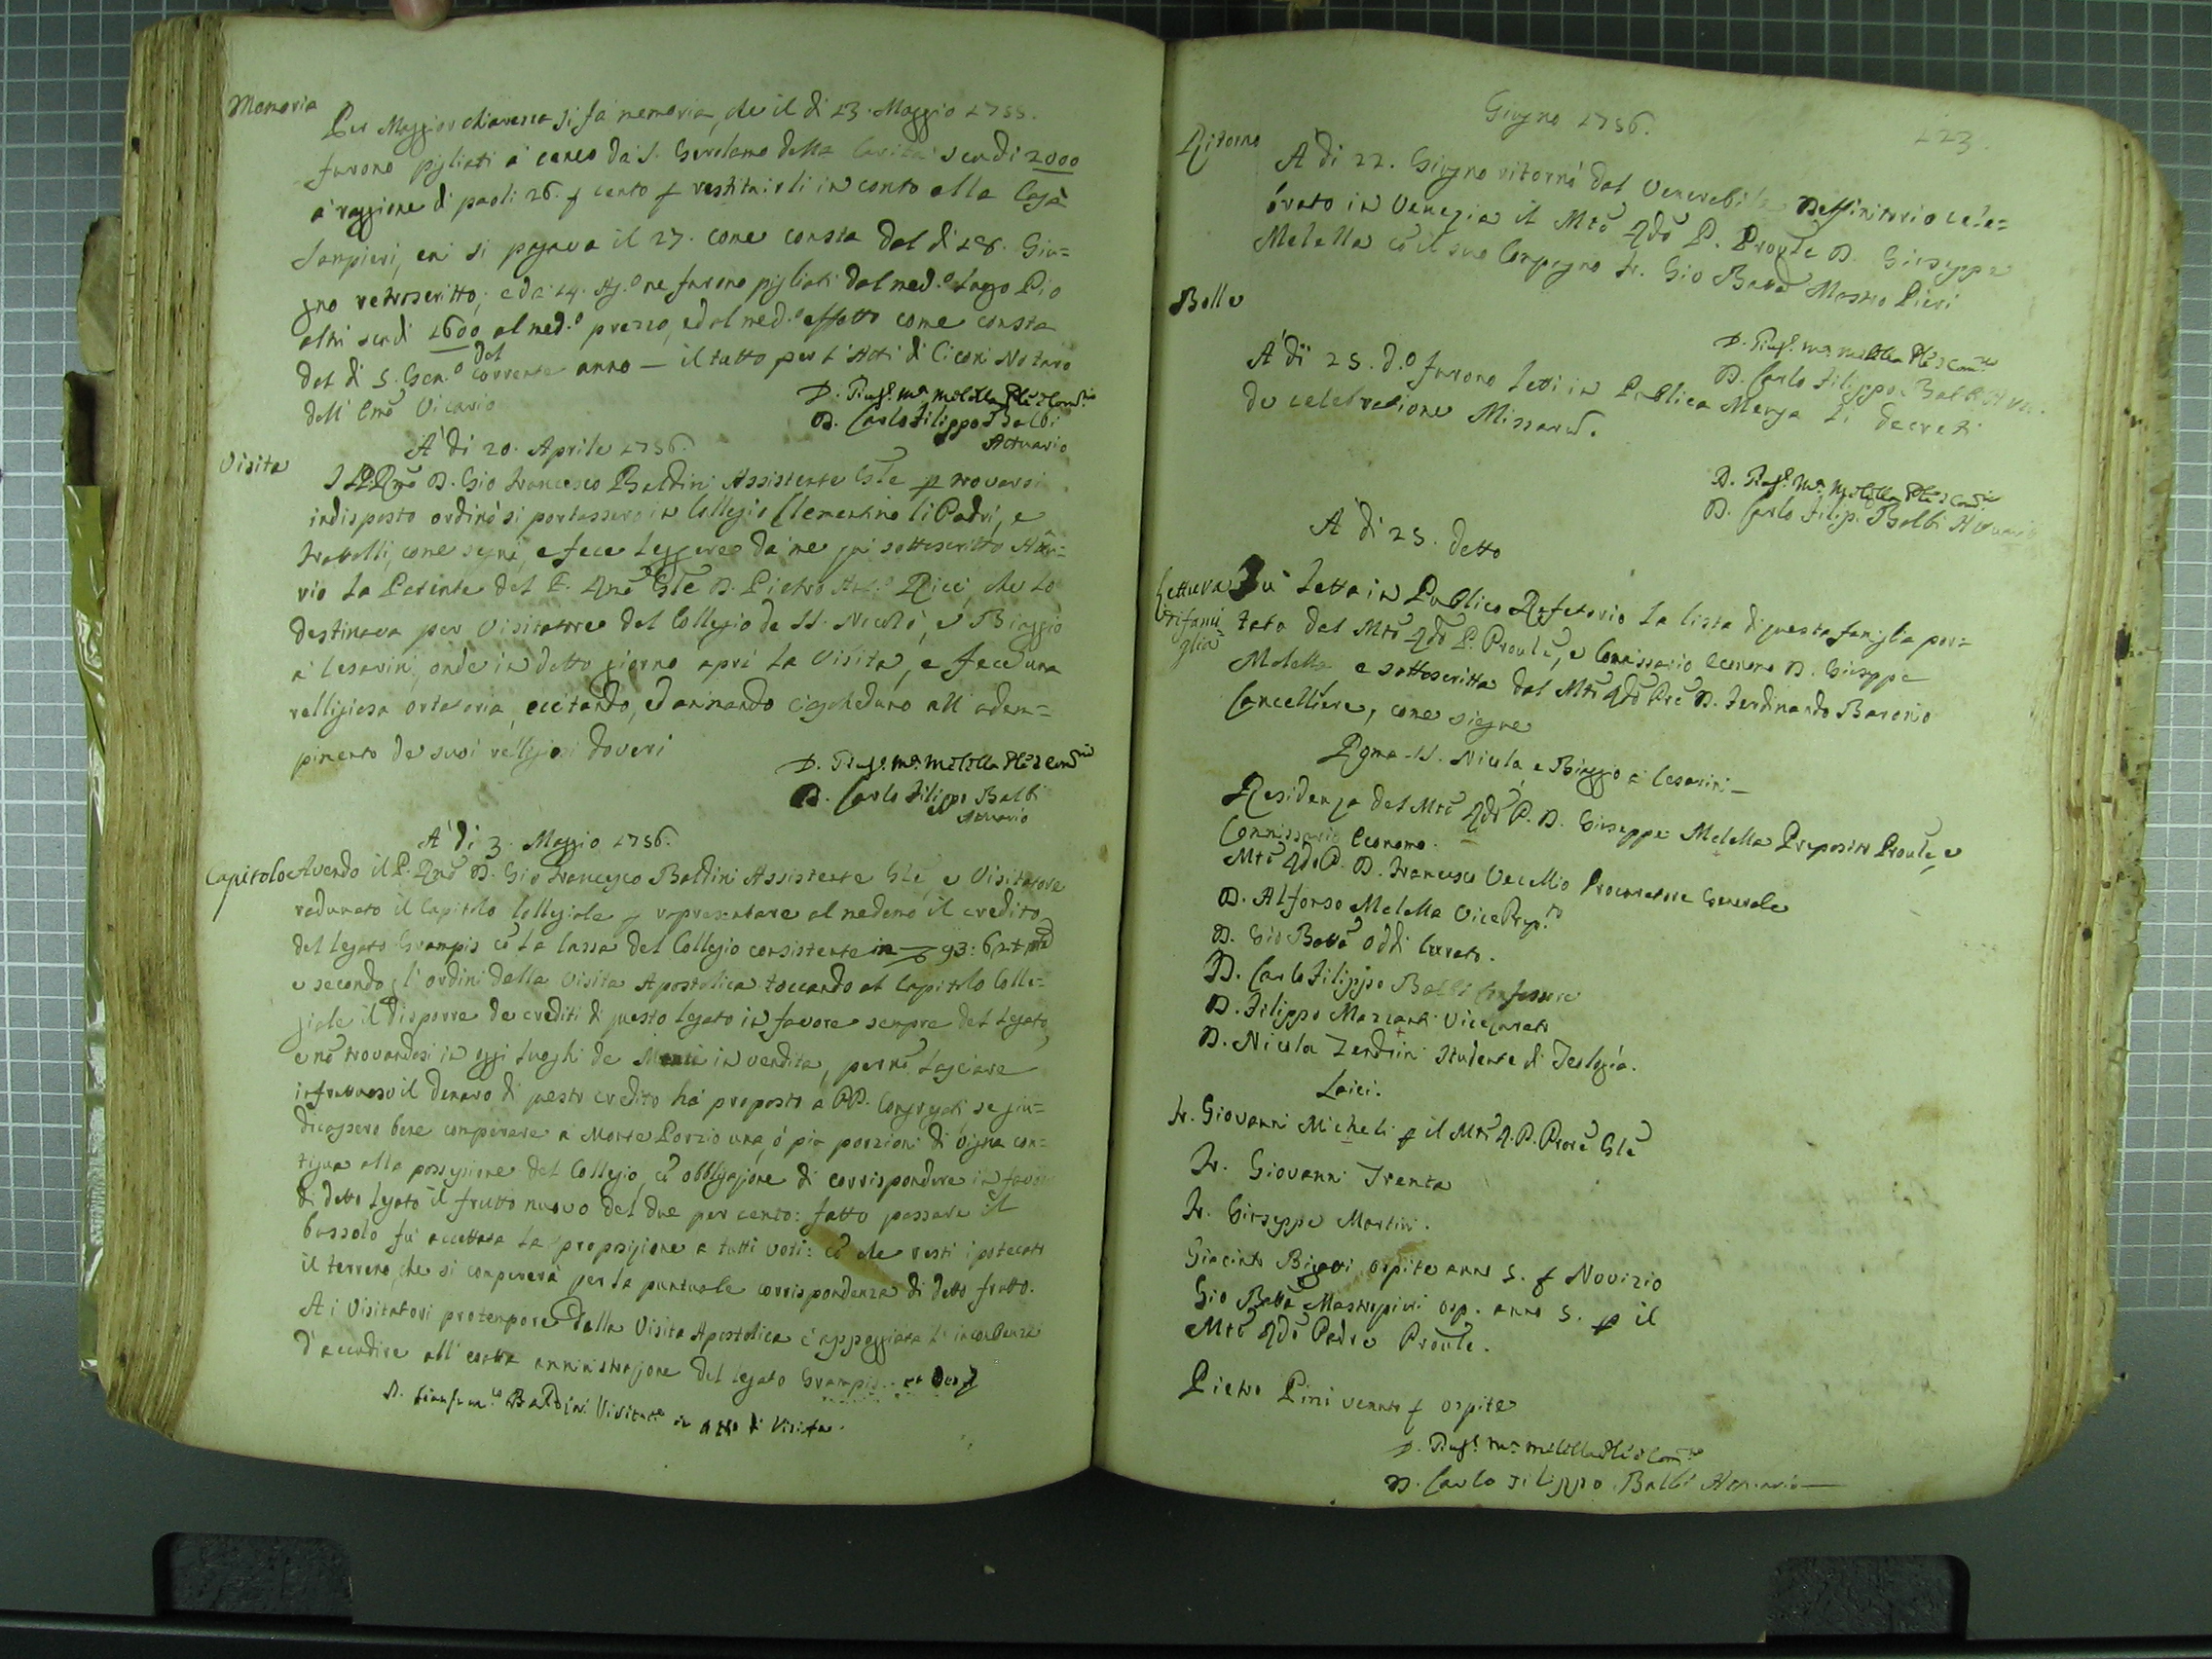 Memoria
Per Maggior chiarezza si fa memoria, che il di 13. Maggio 1755.
furono pigliati a censo da S. Girolamo della Carità scudi 2000
a raggione di paoli 26. p cento p restituirli in conto alla Casa
Sampieri, cui si pagava il 27. come consta dal di 18. Giu=
gno retroscritto; e da 14. Ag.o ne furono pigliati dal med.o Luogo Pio
altri scudi 1600 al med.o prezzo, ed al med.o effetto come consta
dal di 5. Gen.o del corrente anno — il tutto per l'Atti di Ciconi Notaro
dell' Emo Vicario
D. Gius.e M.a Melella
D. Carlo Filippo Balbi
Attuario
Visita
A di 20. Aprile 1756.
Il P. Rmo D. Gio Francesco Baldini Assistente Gle p trovarsi
indisposto ordinò si portassero in Collegio Clementino li Padri, e
Fratelli, come segni, e fece leggere da me qui sottoscritto Attua=
rio la Patente del P. Rmo Gle D. Pietro Ant.o Ricci, che lo
destinava per Visitatore del Collegio de SS. Nicolò, e Biaggio
a Cesarini, onde in detto giorno aprì la Visita, e fece una
relligiosa ortatoria, eccitando, ed animando ciascheduno all' adem=
pimento de suoi relligiosi doveri
D. Gius.e M.a Melella
D. Carlo Filippo Balbi
Attuario
A di 3. Maggio 1756.
Capitolo
Avendo il P. Rmo D. Gio Francesco Baldini Assistente Gle, e Visitatore
radunato il Capitolo Collegiale p rapresentare al medemo il credito
del legato Grampis cō la Cassa del Collegio consistente in 93: 62
e secondo gl' ordini della Visita Apostolica toccando al Capitolo Colle=
giale il disporre de crediti di questo legato in favore sempre del legato,
e nō trovandosi in oggi luoghi de Monti in vendita, per nō lasciare
infruttuoso il denaro di questo credito ha proposto a PP. Congregati se giu=
dicassero bene comperare a Monte Porzio una, ò più porzioni di vigna con=
tigua alla possessione del Collegio, cō obbligazione di corrispondere in favore
di detto legato il frutto nuovo del due per cento: fatto passare il
bossolo fu accettata la proposizione a tutti voti: cō che resti ipotecato
il terreno, che si compererà per la puntuale corrispondenza di detto frutto.
A i Visitatori protempore dalla Visita Apostolica è appoggiata l' incombenza
d' accudire all' esatta amministrazione del legato Grampis.
D. Gianfran.co Baldini Visitat.e in atto di Visita.
Giugno 1756.
123.
Ritorno
A di 22. Giugno ritornò dal Venerabile Deffinitorio cele=
brato in Venezia il Mto Rdo P. Prouĺe D. Giuseppe
Melella cō il suo Compagno Fr. Gio Batta Mastro Pieri
D. Gius.e M.a Melella
D. Carlo Filippo Balbi Attuario
Bolle
A di 25. d.o furono letti in Publica Mensa li decreti
de celebratione Missarū.
D. Gius.e M.a Melella
D. Carlo Filip. Balbi Attuario
A di 25. detto
Lettura
di fami
glia
Fu letta in Publico Refetorio la lista di questa famiglia por=
tata dal Mto Rdo P. Prouĺe, e Comissario Economo D. Giuseppe
Melella e sottoscritta dal Mto Rdo Pre D. Ferdinando Baronio
Cancelliere, come siegue
Roma SS. Nicola, e Biaggio a Cesarini —
Residenza del Mto Rdo P. D. Giuseppe Melella Preposito Prouĺe, e
Commissario Economo.
Mto Rdo P. D. Francesco Vecellio Procuratore Generale
D. Alfonso Melella Vice Prep.to
D. Gio Batta Oddi Curato.
D. Carlo Filippo Balbi Confessore
D. Filippo Marzanti Vicecurato
D. Nicola Zendrini Studente di Teologia.
Laici.
Fr. Giovanni Micheli p il Mto R. P. Prore Gle
Fr. Giovanni Trenta
Fr. Giuseppe Martini.
Giacinto Bigatti ospite anno 5. p Novizio
Gio Batta Mastropieri osp. anno 5. p il
Mto Rdo Padre Prouĺe.
Pietro Pini venuto p ospite
D. Gius.e M.a Melella
D. Carlo Filippo Balbi Attuario —